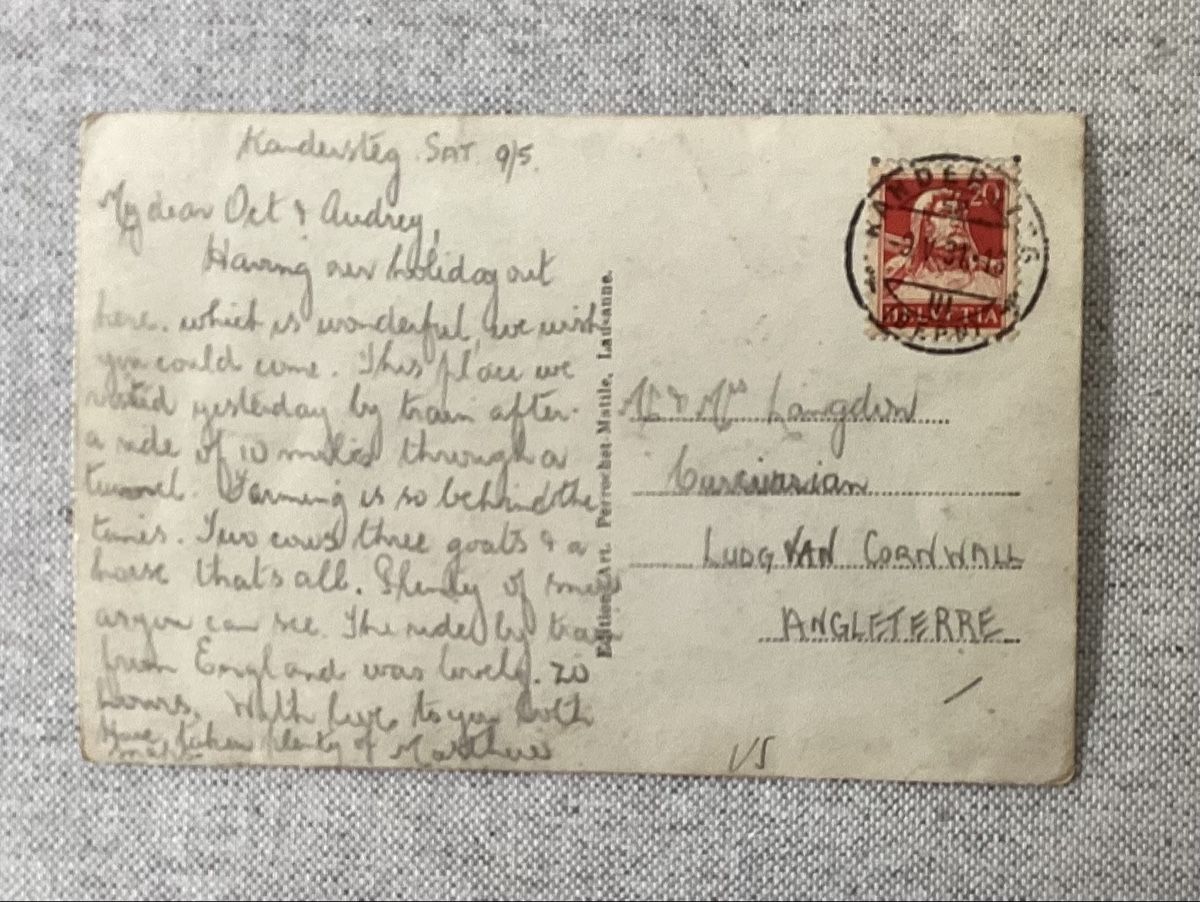 Kandersteg SAT. 9/5.
My dear Oct & Audrey,
Having our holiday out
here. which is wonderful we wish
you could come. This place we
visited yesterday by train after
a ride of 10 miles through a
tunnel. Farming is so behind the
times. Two cows three goats & a
horse thats all. Plenty of
as you can see. The ride by train
from England was lovely. 20
hours. With love to you both
Have taken plenty of Matthew
KANDERSTEG
9.V.31.-
HELVETIA
20
Edition Art. Perrochet-Matile, Lausanne.
Mr & Mrs Langdon
LUDGVAN CORNWALL
ANGLETERRE